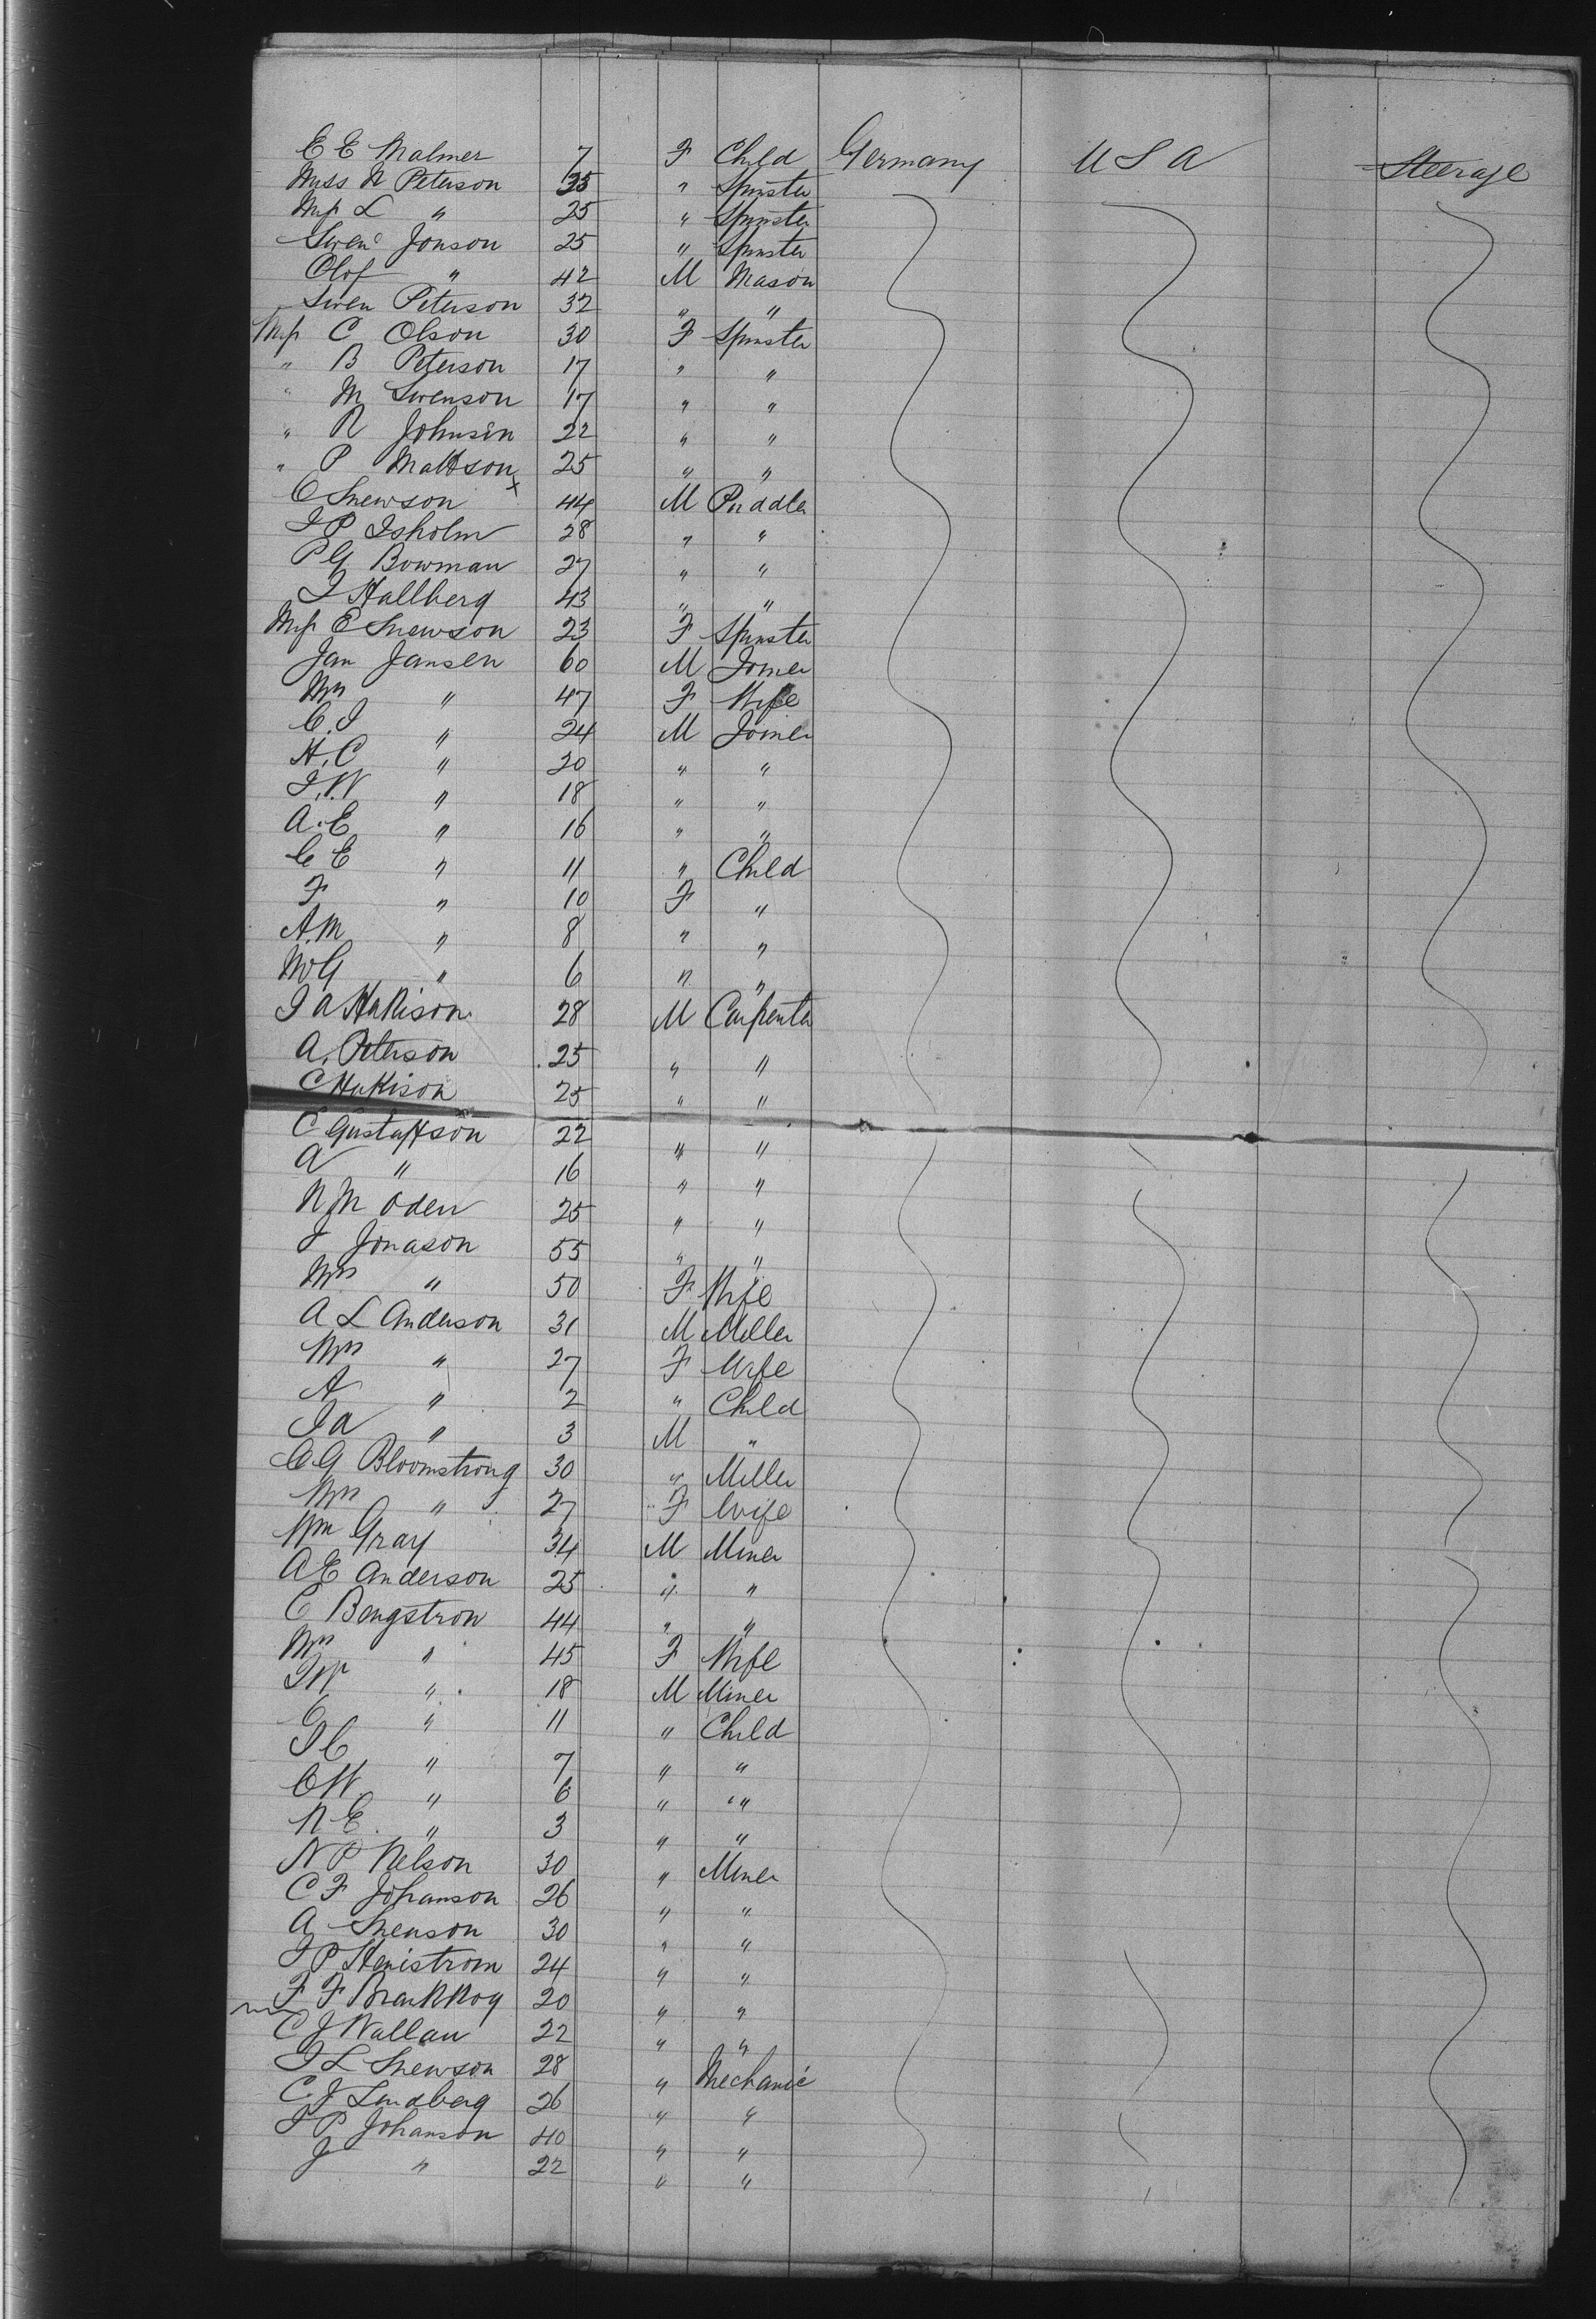 E E Malmer 7 F Child Germany U S A Steerage
Miss N Peterson 25 " Spinster
Miss L " 25 " Spinster
Swen Jonson 25 " Spinster
Olof " 42 M Mason
Swen Peterson 32 " "
Miss C Olson 30 F Spinster
" B Peterson 17 " "
" M Swenson 17 " "
" N Johnsin 22 " "
" P Mattson x 25 " "
C Snewson 44 M Puddler
I P Isholm 28 " "
P G Bowman 27 " "
I Hallberg 43 " "
Miss E Snewson 23 F Spinster
Jan Jansen 60 M Joiner
Mrs " 47 F Wife
C. I " 24 M Joiner
H. C " 20 " "
I. W " 18 " "
A. E " 16 " "
C E " 11 " Child
F " 10 F "
A. M " 8 " "
W G " 6 " "
I A Hakison 28 M Carpenter
A. Peterson 25 " "
C Hakison 25 " "
C Gustaffson 22 " "
A " 16 " "
N M Oden 25 " "
J Jonason 55 " "
Mrs " 50 F Wife
A L Anderson 31 M Miller
Mrs " 27 F Wife
A " 2 " Child
I A " 3 M "
C G Bloomstrong 30 " Miller
Mrs " 27 F Wife
Wm Gray 34 M Miner
A E Anderson 25 " "
C Bengstron 44 " "
Mrs " 45 F Wife
I W " 18 M Miner
C " 11 " Child
I C " 7 " "
C W " 6 " "
N E " 3 " "
N P Nelson 30 " Miner
C F Johanson 26 " "
A Snenson 30 " "
I P Henistrom 24 " "
F F 20 " "
C J Wallan 22 " "
I L Snewson 28 " Mechanic
C J Lindberg 26 " "
I P Johanson 40 " "
J " 22 " "